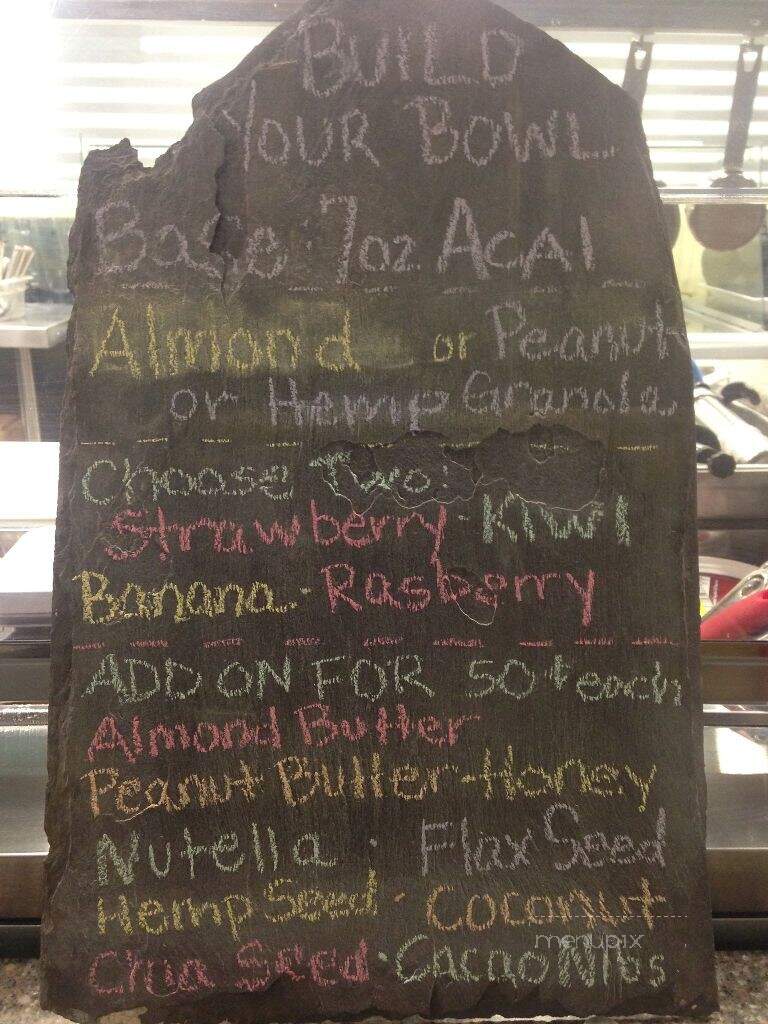 BUILD
YOUR BOWL
Base: 7oz ACAI
Almond or Peanut
or Hemp Granola
Choose Two:
Strawberry · Kiwi
Banana · Rasberry
ADD ON FOR 50¢ each
Almond Butter
Peanut Butter · Honey
Nutella · Flax Seed
Hemp Seed · Coconut
menupix
Chia Seed · Cacao Nibs